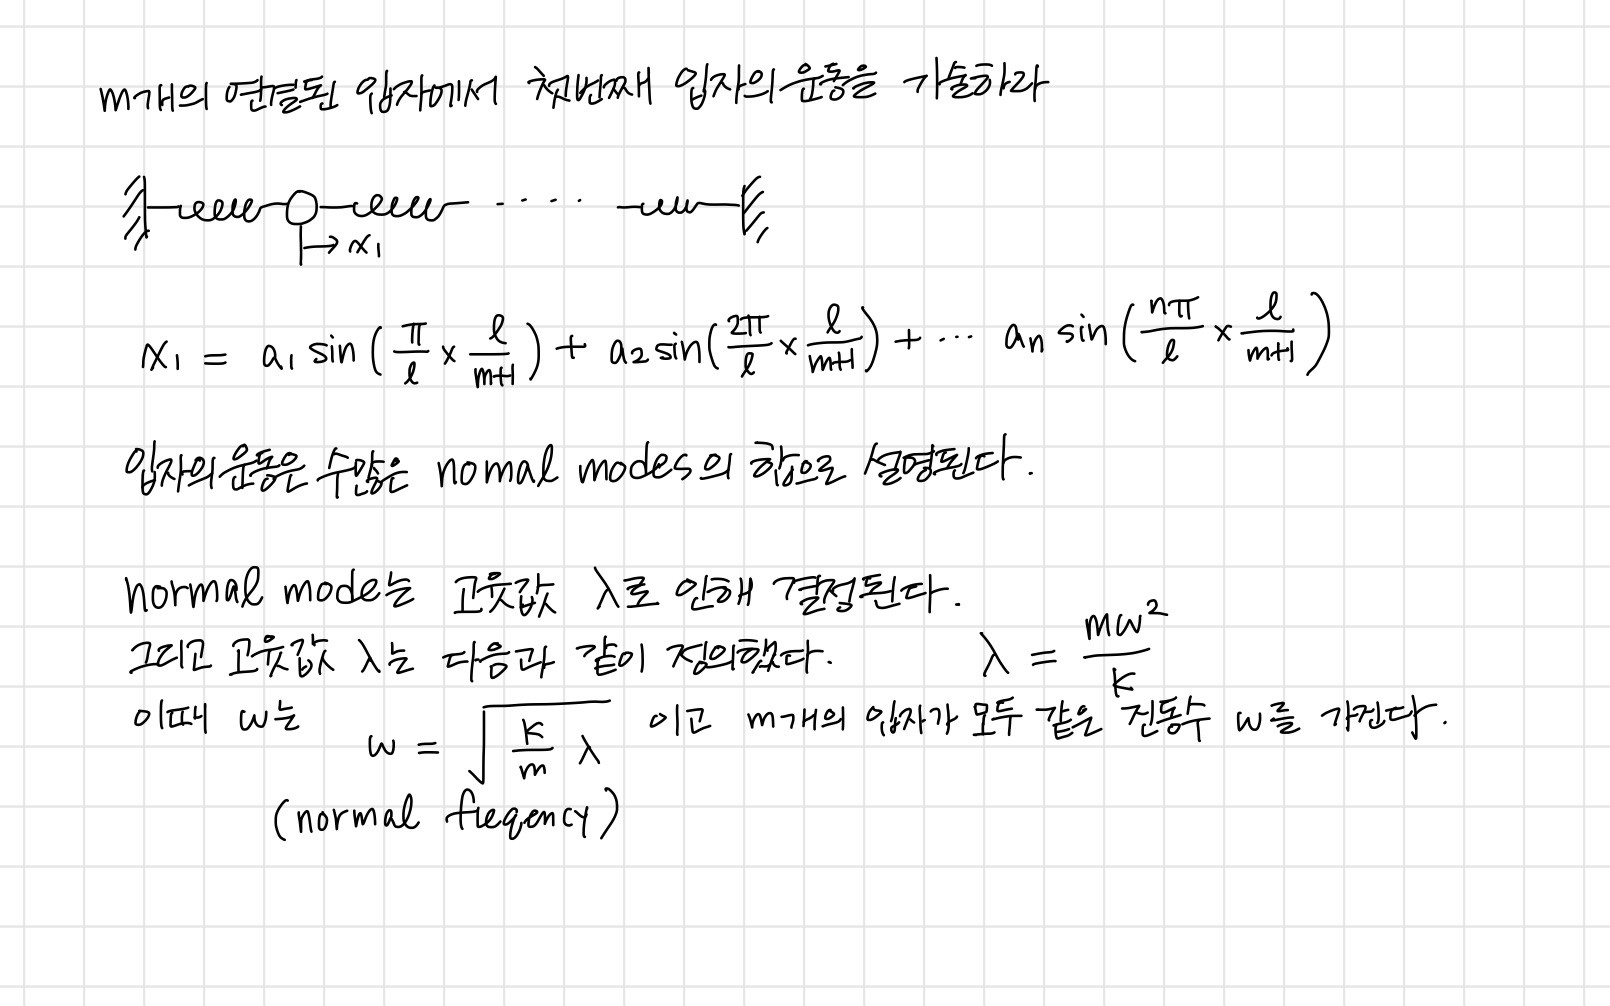 m개의 연결된 입자에서 첫번째 입자의 운동을 기술하라
x₁
x₁ = a₁ sin (π/l × l/m+1) + a₂ sin (2π/l × l/m+1) + ⋯ aₙ sin (nπ/l × l/m+1)
입자의 운동은 수많은 nomal modes의 합으로 설명된다.
normal mode는 고윳값 λ로 인해 결정된다.
그리고 고윳값 λ는 다음과 같이 정의했다. λ = mω²/k
이때 ω는 ω = √(k/m λ) 이고 m개의 입자가 모두 같은 진동수 ω를 가진다.
(normal freqency)